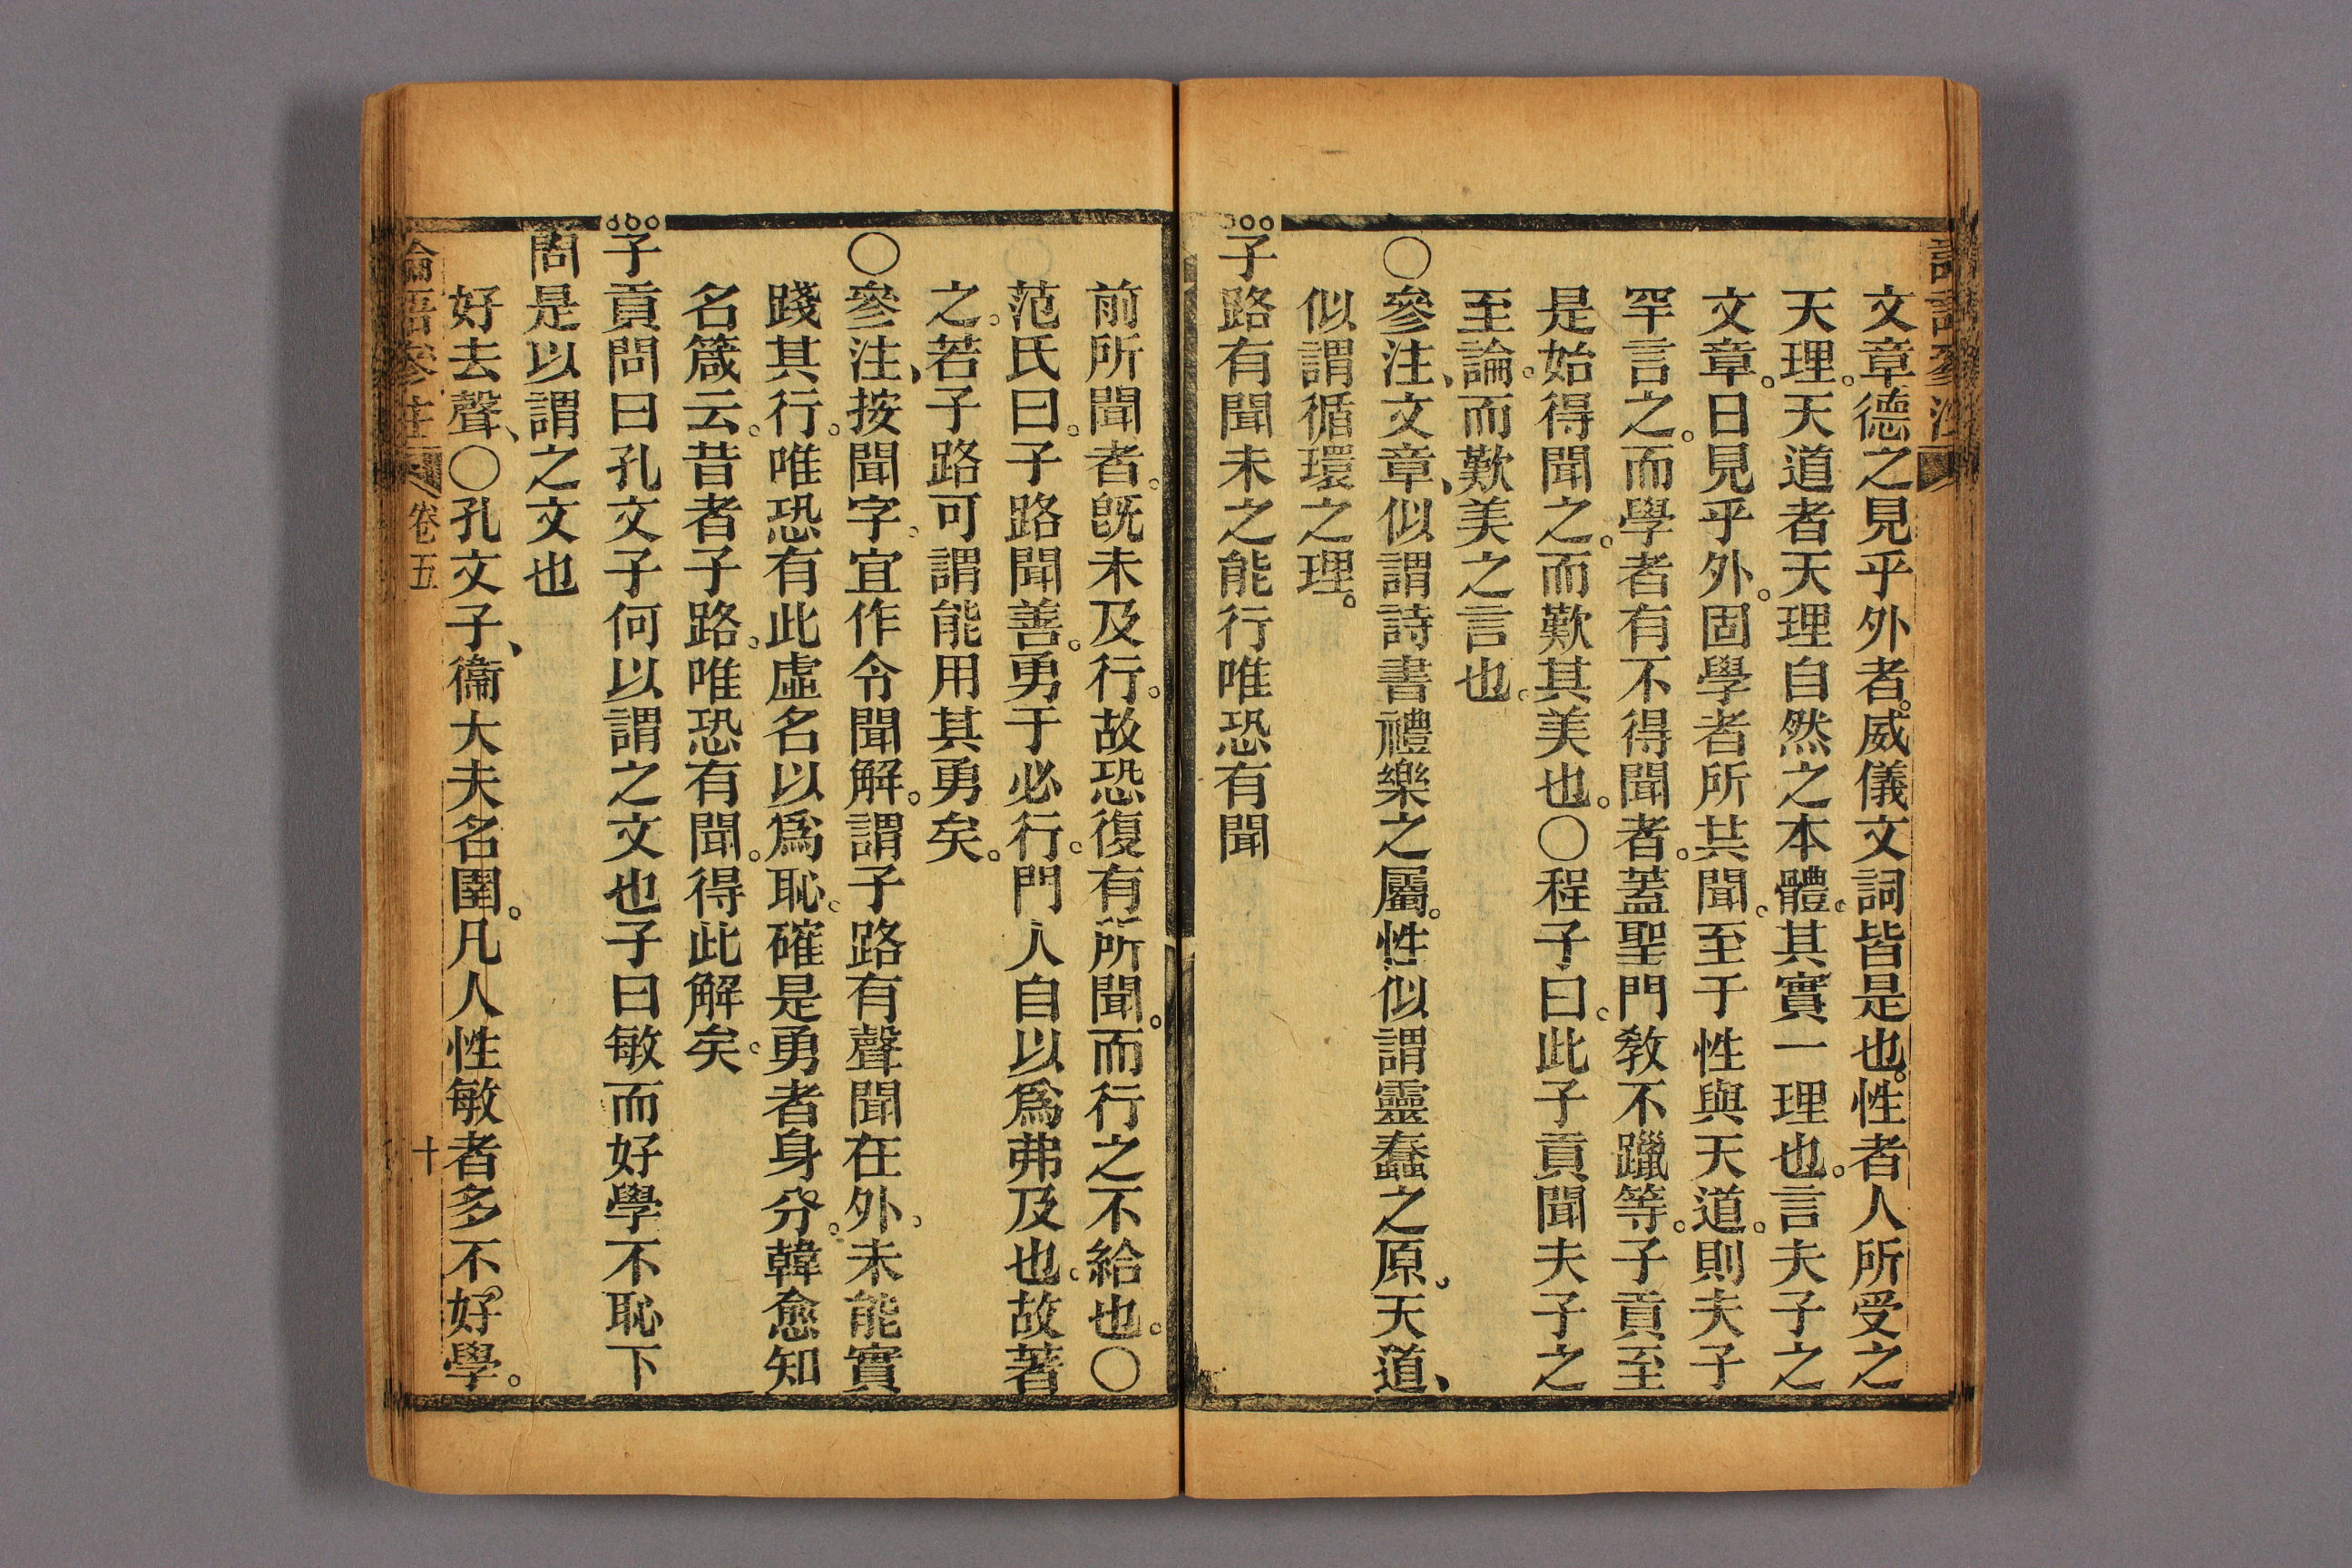 文章德之見乎外者。威儀文詞皆是也。性者人所受之
天理。天道者天理自然之本體。其實一理也。言夫子之
文章。日見乎外。固學者所共聞。至于性與天道。則夫子
罕言之。而學者有不得聞者。蓋聖門敎不躐等。子貢至
是始得聞之。而歎其美也。〇程子曰。此子貢聞夫子之
至論。而歎美之言也。
〇參注、文章、似謂詩書禮樂之屬。性似謂靈蠢之原。天道、
似謂循環之理。
子路有聞未之能行唯恐有聞
前所聞者。旣未及行。故恐復有所聞。而行之不給也。〇
范氏曰。子路聞善。勇于必行。門人自以爲弗及也。故著
之。若子路可謂能用其勇矣。
〇參注、按聞字。宜作令聞解。謂子路有聲聞在外。未能實
踐其行。唯恐有此虛名以爲恥。確是勇者身分。韓愈知
名箴云。昔者子路。唯恐有聞。得此解矣。
子貢問曰孔文子何以謂之文也子曰敏而好學不恥下
問是以謂之文也
好去聲、〇孔文子、衞大夫名圉。凡人性敏者多不好學。
論語參注 卷五 十